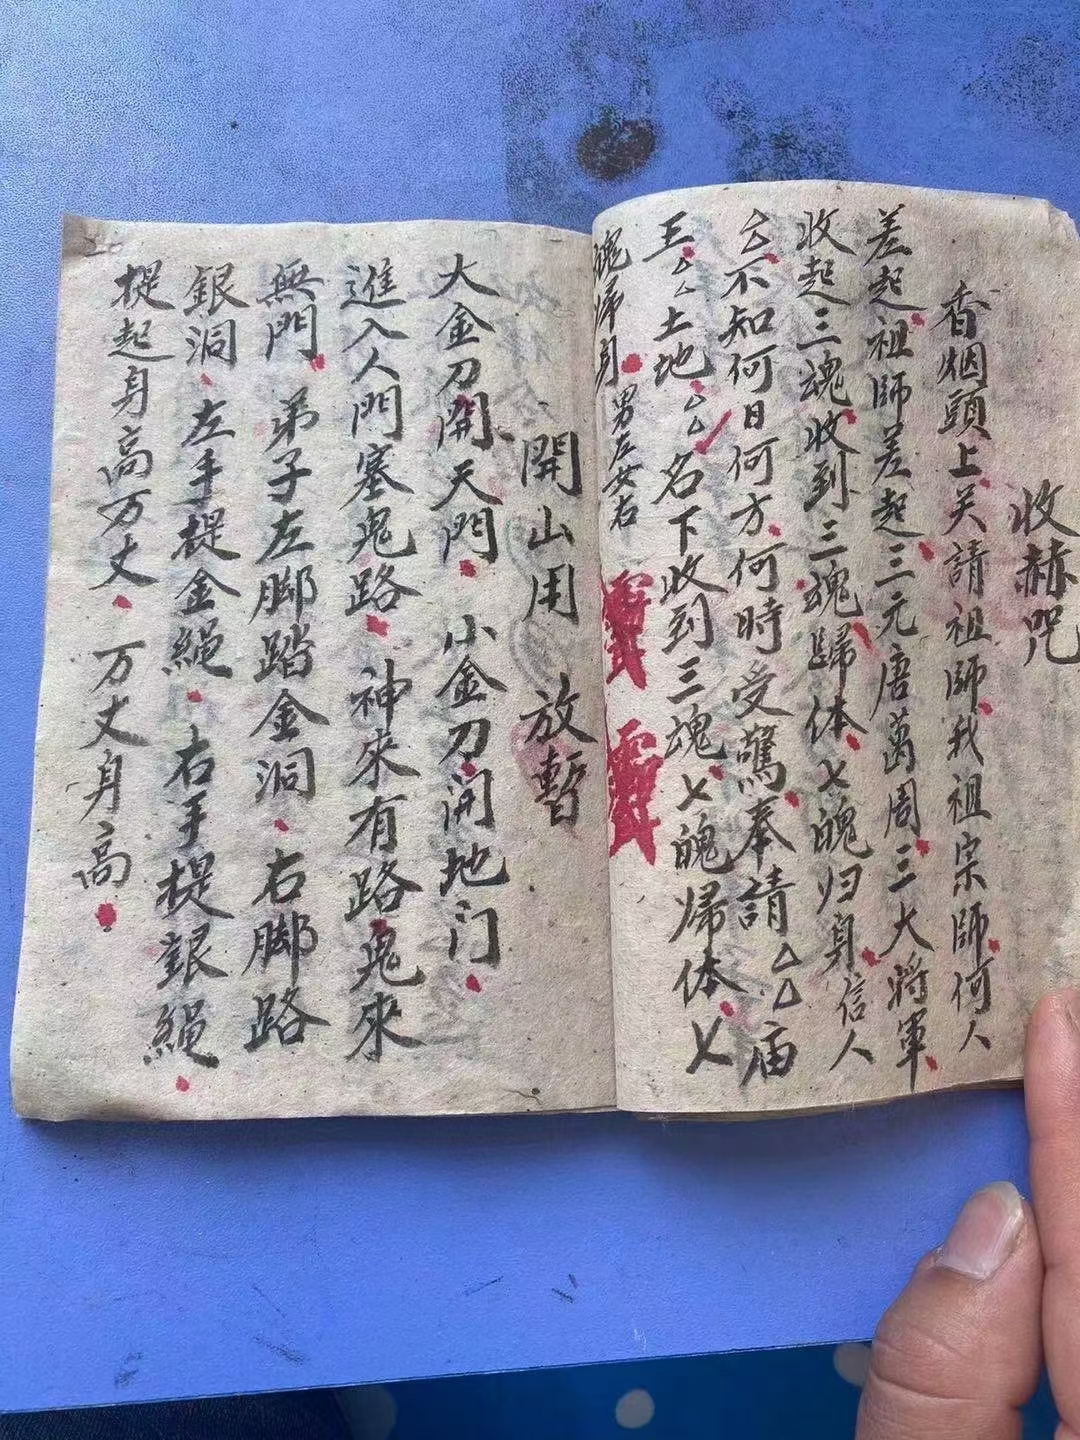 收赫咒
香烟頭上.关請祖師.我祖宗師.何人
差起.祖師差起.三元唐葛周.三大将軍.
收起三魂.收到三魂歸体.七魄归身.信人
厶不知何日何方.何時受驚.奉請厶厶庙
王.厶厶土地.厶厶名下收到三魂.七魄归体.七
魄归身.男左女右
開山用 放暫
大金刀開天門.小金刀開地门.
進入人門塞鬼路.神來有路鬼來
無門.弟子左脚踏金洞.右脚路
銀洞.左手提金繩.右手提銀繩.
提起身高万丈.万丈身高.